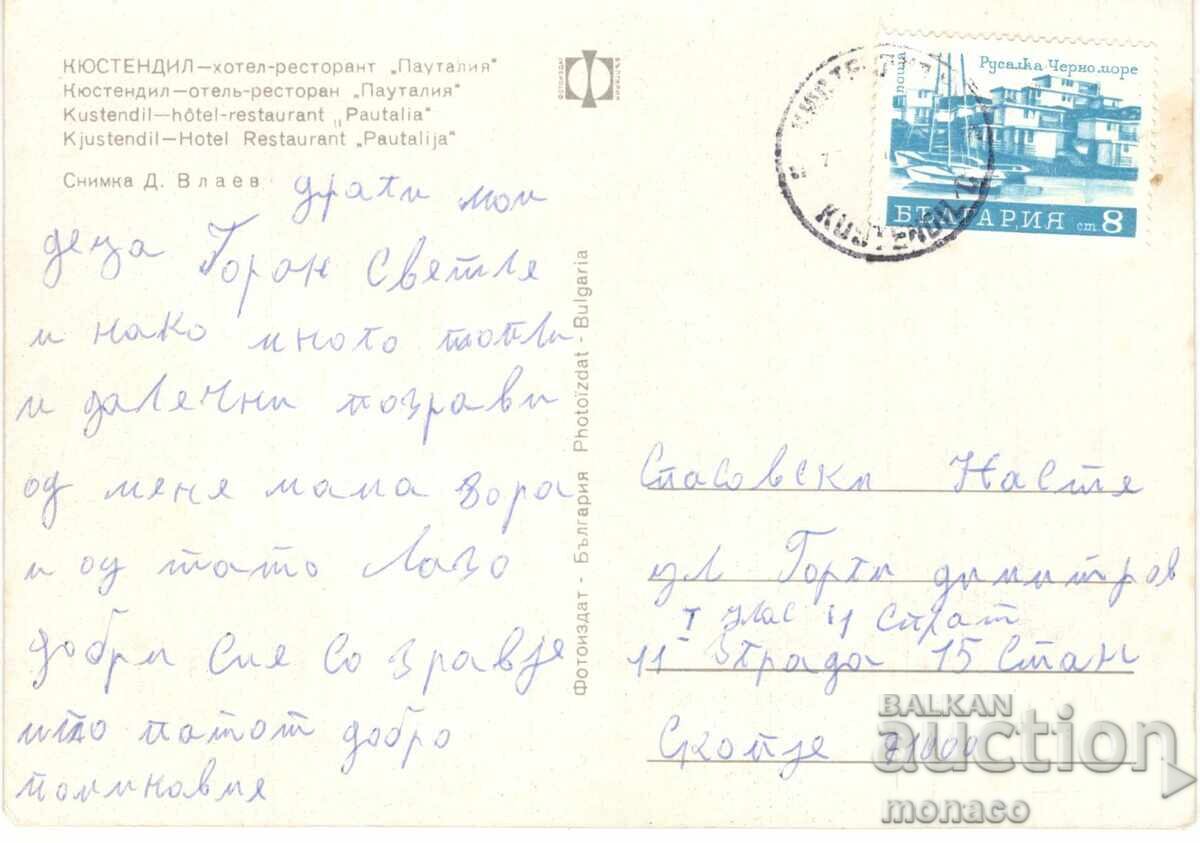 КЮСТЕНДИЛ—хотел-ресторант „Пауталия"
Кюстендил—отель-ресторан „Пауталия"
Kustendil—hôtel-restaurant „Pautalia"
Kjustendil—Hotel Restaurant „Pautalija"
Снимка Д. Влаев
ФОТОИЗДАТ
БЪЛГАРИЯ
драги мои
деца Горан Светле
и нако многo топли
и далечни поздрави
од мене мама Зора
и од тато Лазо
добри сме со здравје
што патот добро
поминавме
Фотоиздат - България Photoïzdat - Bulgaria
KUSTENDIL
7
поща
Русалка Черно море
БЪЛГАРИЯ ст. 8
Спасовски Насте
ул Горги димитров
I улас 11 Спрат
11 Зграда 15 Стан
Скопје 91000
BALKAN
auction
monaco